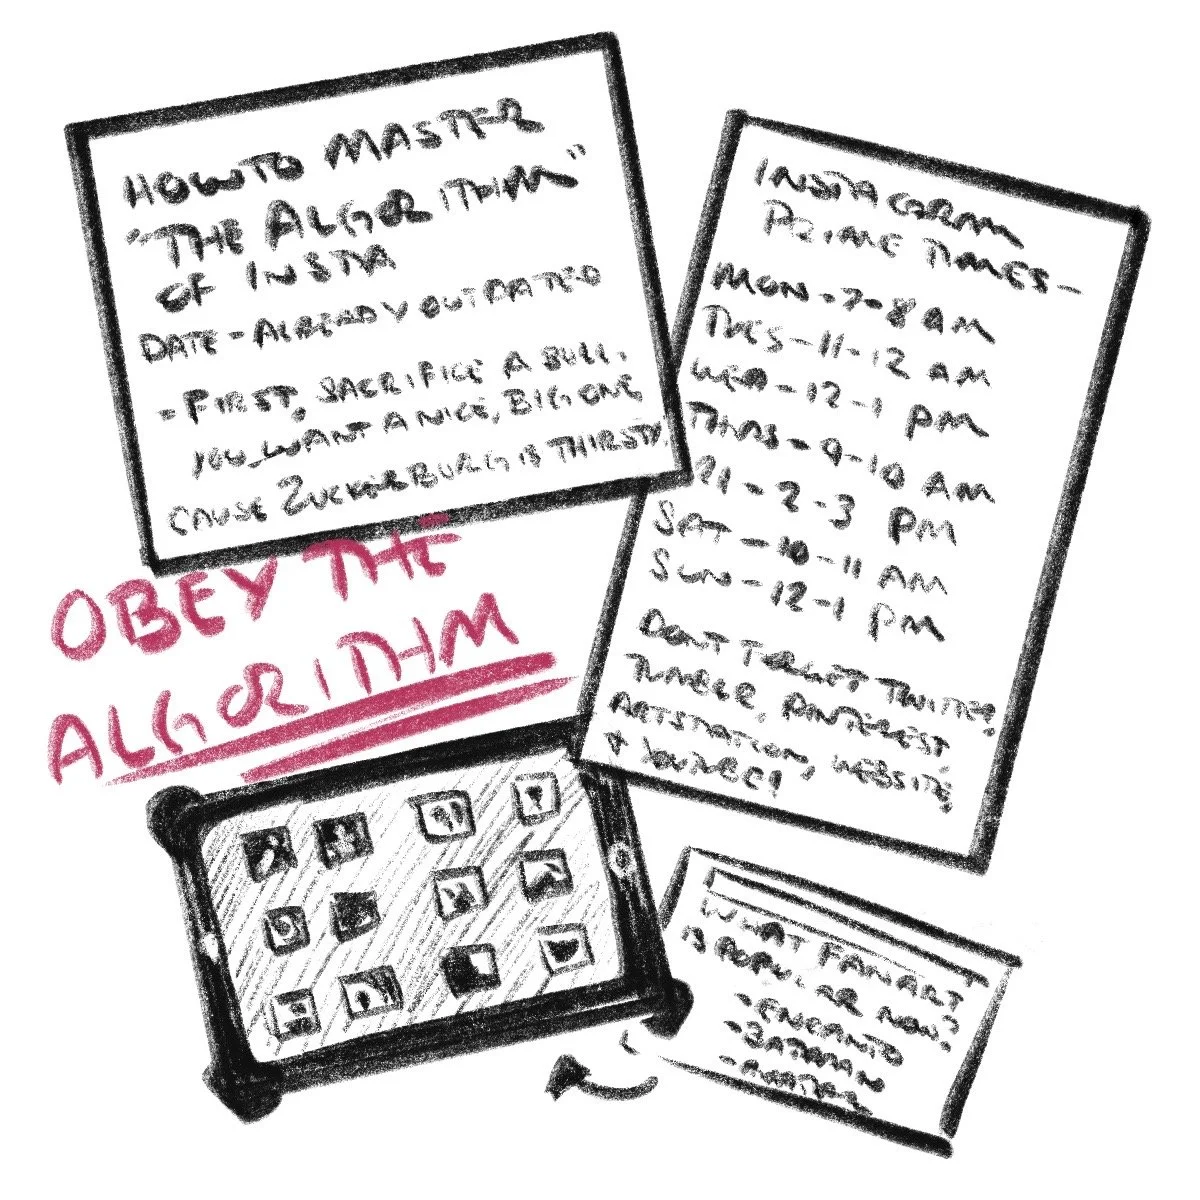 HOW TO MASTER
"THE ALGORITHM"
OF INSTA
DATE - ALREADY OUTDATED
- FIRST, SACRIFICE A BULL.
YOU WANT A NICE, BIG ONE
CAUSE ZUCKERBURG IS THIRSTY.
OBEY THE
ALGORITHM
INSTAGRAM
PRIME TIMES -
MON - 7-8 AM
TUES - 11-12 AM
WED - 12-1 PM
THURS - 9-10 AM
- 2-3 PM
SAT - 10-11 AM
SUN - 12-1 PM
DON'T FORGET TWITTER,
TUMBLR, PINTEREST,
ARTSTATION, WEBSITE,
+
WHAT FANART
IS POPULAR NOW?
- ENCANTO
- BATMAN
- AVATAR